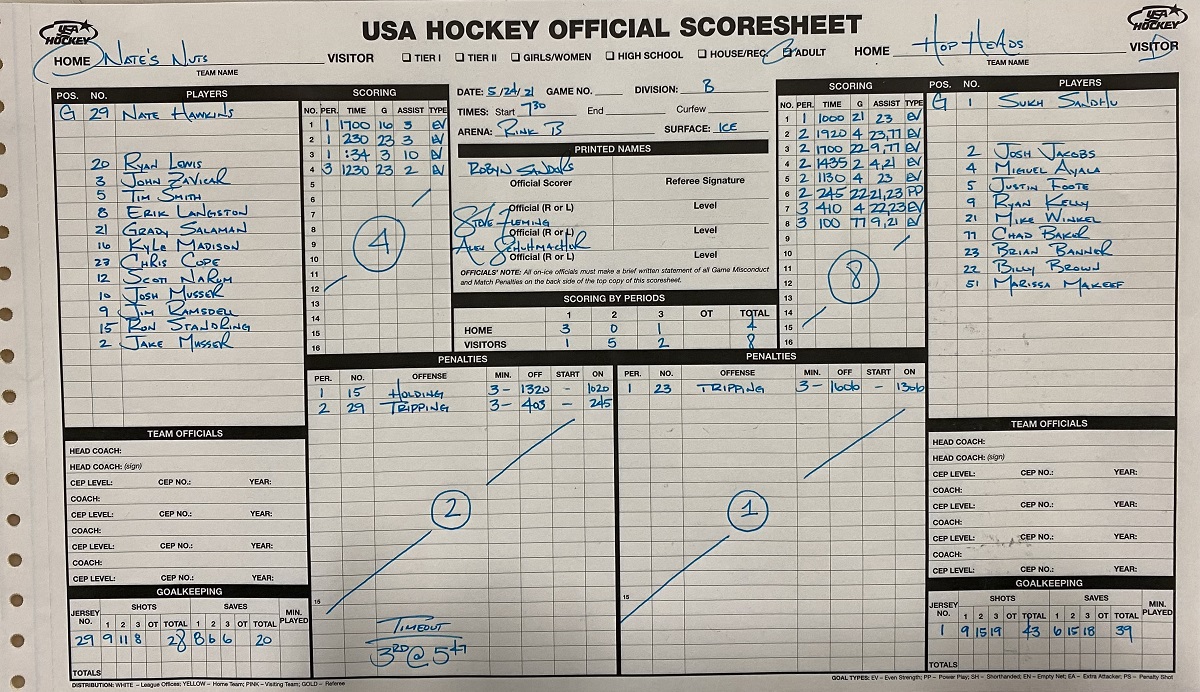 USA HOCKEY OFFICIAL SCORESHEET
USA HOCKEY
USA HOCKEY
HOME NATE'S NUTS VISITOR
TEAM NAME
☐ TIER I ☐ TIER II ☐ GIRLS/WOMEN ☐ HIGH SCHOOL ☐ HOUSE/REC ☐ ADULT
HOME HOP HEADS VISITOR
TEAM NAME
POS. NO. PLAYERS
G 29 NATE HAWKINS
20 RYAN LEWIS
3 JOHN ZAVICAR
5 TIM SMITH
8 ERIK LANGSTON
21 GRADY SALAMAN
16 KYLE MADISON
23 CHRIS COPE
12 SCOTT NARUM
10 JOSH MUSSER
9 JIM RAMSDELL
15 RON STANDRING
2 JAKE MUSSER
SCORING
NO. PER. TIME G ASSIST TYPE
1 1 1700 16 3 EV
2 1 230 23 3 EV
3 1 :34 3 10 EV
4 3 1230 23 2 EV
5
6
7
8
9
10
11
12
13
14
15
16
4
DATE: 5/24/21 GAME NO. DIVISION: B
TIMES: Start 730 End Curfew
ARENA: RINK B SURFACE: ICE
PRINTED NAMES
ROBYN SANDORS
Official Scorer Referee Signature
Official (R or L) Level
STEVE FLEMING
Official (R or L) Level
ALEX SCHUHMACHOR
Official (R or L) Level
OFFICIALS' NOTE: All on-ice officials must make a brief written statement of all Game Misconduct
and Match Penalties on the back side of the top copy of this scoresheet.
SCORING BY PERIODS
1 2 3 OT TOTAL
HOME 3 0 1 4
VISITORS 1 5 2 8
SCORING
NO. PER. TIME G ASSIST TYPE
1 1 1000 21 23 EV
2 2 1920 4 23,77 EV
3 2 1700 22 9,77 EV
4 2 1435 2 4,21 EV
5 2 1130 4 23 EV
6 2 245 22 21,23 PP
7 3 410 4 22,23 EV
8 3 100 77 9,21 EV
9
10
11
12
13
14
15
16
8
POS. NO. PLAYERS
G 1 SUKH SANDHU
2 JOSH JACOBS
4 MIGUEL AYALA
5 JUSTIN FOOTE
9 RYAN KELLY
21 MIKE WINKEL
77 CHAD BAKER
23 BRIAN BANNER
22 BILLY BROWN
51 MARISSA MAKEEF
PENALTIES
PER. NO. OFFENSE MIN. OFF START ON
1 15 HOLDING 3- 1320 - 1020
2 29 TRIPPING 3- 403 - 245
2
15
TIMEOUT
3RD @ 547
PENALTIES
PER. NO. OFFENSE MIN. OFF START ON
1 23 TRIPPING 3- 1606 - 1306
1
15
TEAM OFFICIALS
HEAD COACH:
HEAD COACH: (sign)
CEP LEVEL: CEP NO.: YEAR:
COACH:
CEP LEVEL: CEP NO.: YEAR:
COACH:
CEP LEVEL: CEP NO.: YEAR:
COACH:
CEP LEVEL: CEP NO.: YEAR:
GOALKEEPING
JERSEY NO. SHOTS SAVES MIN. PLAYED
1 2 3 OT TOTAL 1 2 3 OT TOTAL
29 9 11 8 28 8 6 6 20
TOTALS
TEAM OFFICIALS
HEAD COACH:
HEAD COACH: (sign)
CEP LEVEL: CEP NO.: YEAR:
COACH:
CEP LEVEL: CEP NO.: YEAR:
COACH:
CEP LEVEL: CEP NO.: YEAR:
COACH:
CEP LEVEL: CEP NO.: YEAR:
GOALKEEPING
JERSEY NO. SHOTS SAVES MIN. PLAYED
1 2 3 OT TOTAL 1 2 3 OT TOTAL
1 9 15 19 43 6 15 18 39
TOTALS
DISTRIBUTION: WHITE – League Offices; YELLOW – Home Team; PINK – Visiting Team; GOLD – Referee
GOAL TYPES: EV – Even Strength; PP – Power Play; SH – Shorthanded; EN – Empty Net; EA – Extra Attacker; PS – Penalty Shot